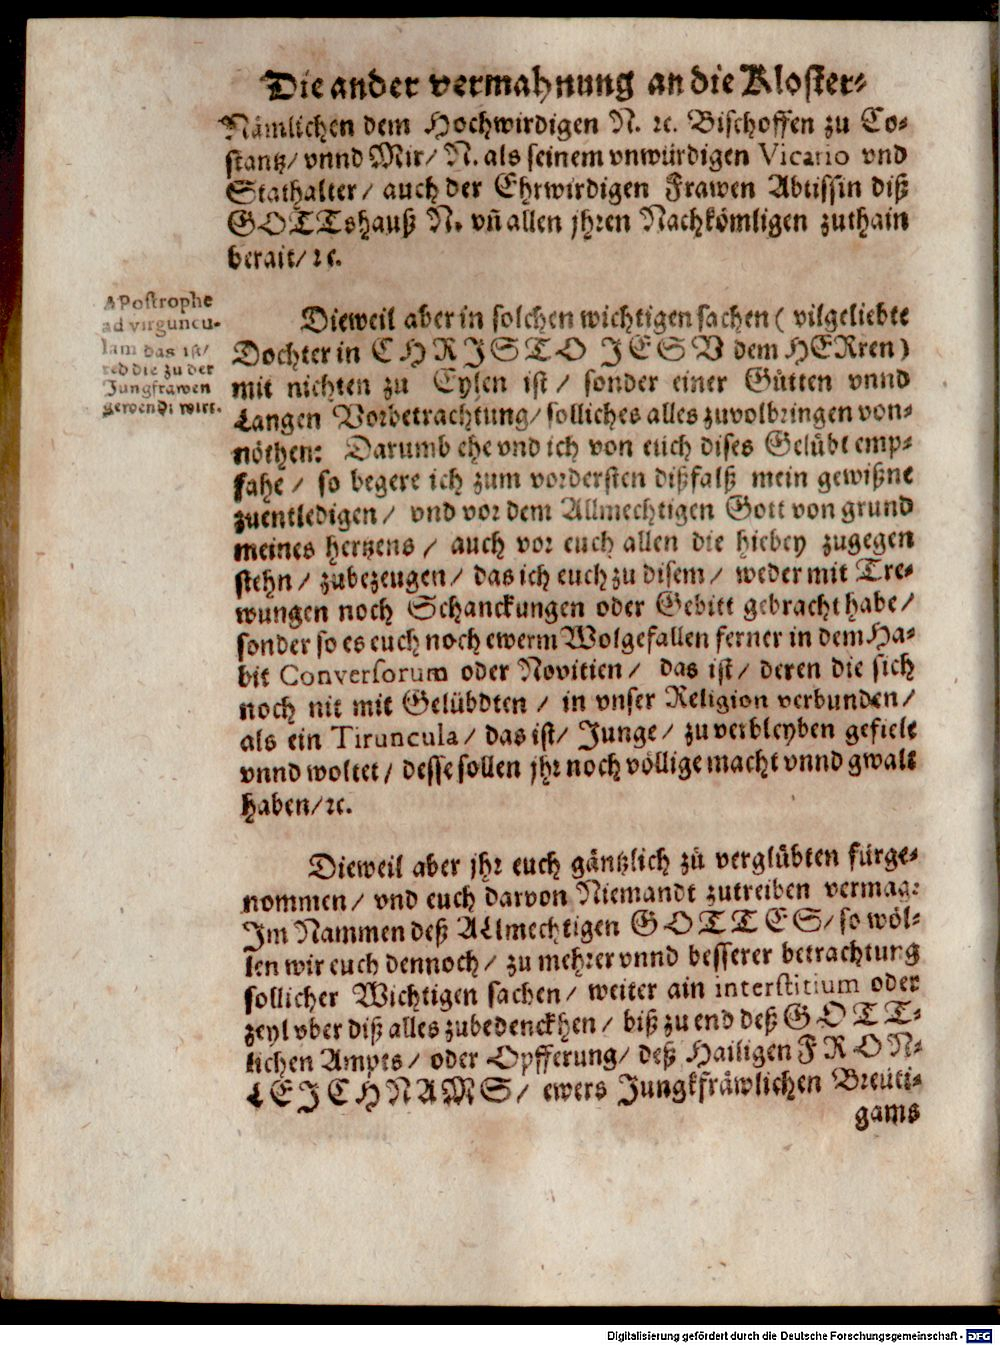 Die ander vermahnung an die Kloster⸗
Nämlichen dem Hochwirdigen N. ꝛc. Bischoffen zu Co⸗
stantz/ vnnd Mir/ N. als seinem vnwürdigen Vicario vnd
Stathalter/ auch der Ehrwirdigen Frawen Abtissin diß
GOTTshauß N. vñ allen jhren Nachkömligen zuthain
berait/ ꝛc.
APostrophe
ad virguncu⸗
lam das ist/
red die zu der
Jungfrawen
gewendt wirt.
Dieweil aber in solchen wichtigen sachen ( vilgeliebte
Dochter in CHRISTO JESV dem HERren)
mit nichten zu Eylen ist/ sonder einer Gůtten vnnd
Langen Vorbetrachtung/ solliches alles zuvolbringen von⸗
nöthen: Darumb ehe vnd ich von euch dises Gelübt emp⸗
fahe/ so begere ich zum vordersten dißfalß mein gewißne
zuentledigen/ vnd vor dem Allmechtigen Gott von grund
meines hertzens/ auch vor euch allen die hiebey zugegen
stehn/ zubezeugen/ das ich euch zu disem/ weder mit Tre⸗
wungen noch Schanckungen oder Gebitt gebracht habe/
sonder so es euch noch ewerm Wolgefallen ferner in dem Ha⸗
bit Conversorum oder Novitien/ das ist/ deren die sich
noch nit mit Gelübdten/ in vnser Religion verbunden/
als ein Tiruncula/ das ist/ Junge/ zu verbleyben gefiele
vnnd woltet/ desse sollen jhr noch völlige macht vnnd gwalt
haben/ ꝛc.
Dieweil aber jhr euch gäntzlich zů verglübten fürge⸗
nommen/ vnd euch darvon Niemandt zutreiben vermag:
Im Nammen deß ALlmechtigen GOTTES/ so wöl⸗
len wir euch dennoch/ zu mehrer vnnd besserer betrachtung
sollicher Wichtigen sachen/ weiter ain interstitium oder
zeyl vber diß alles zubedenckhen/ biß zu end deß GOTT⸗
lichen Ampts/ oder Opfferung/ deß Hailigen FRON⸗
LEICHNAMS/ ewers Jungkfräwlichen Breüti⸗
gams
Digitalisierung gefördert durch die Deutsche Forschungsgemeinschaft - DFG